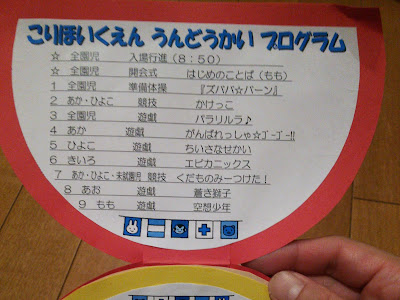 こりほいくえん うんどうかい プログラム
☆ 全園児 入場行進(8:50)
☆ 全園児 開会式 はじめのことば(もも)
1 全園児 準備体操 『ズババ☆バーン』
2 あか・ひよこ 競技 かけっこ
3 全園児 遊戯 パラリルラ♪
4 あか 遊戯 がんばれっしゃ☆ゴーゴー!!
5 ひよこ 遊戯 ちいさなせかい
6 きいろ 遊戯 エビカニックス
7 あか・ひよこ・未就園児 競技 くだものみーつけた!
8 あお 遊戯 蒼き獅子
9 もも 遊戯 空想少年